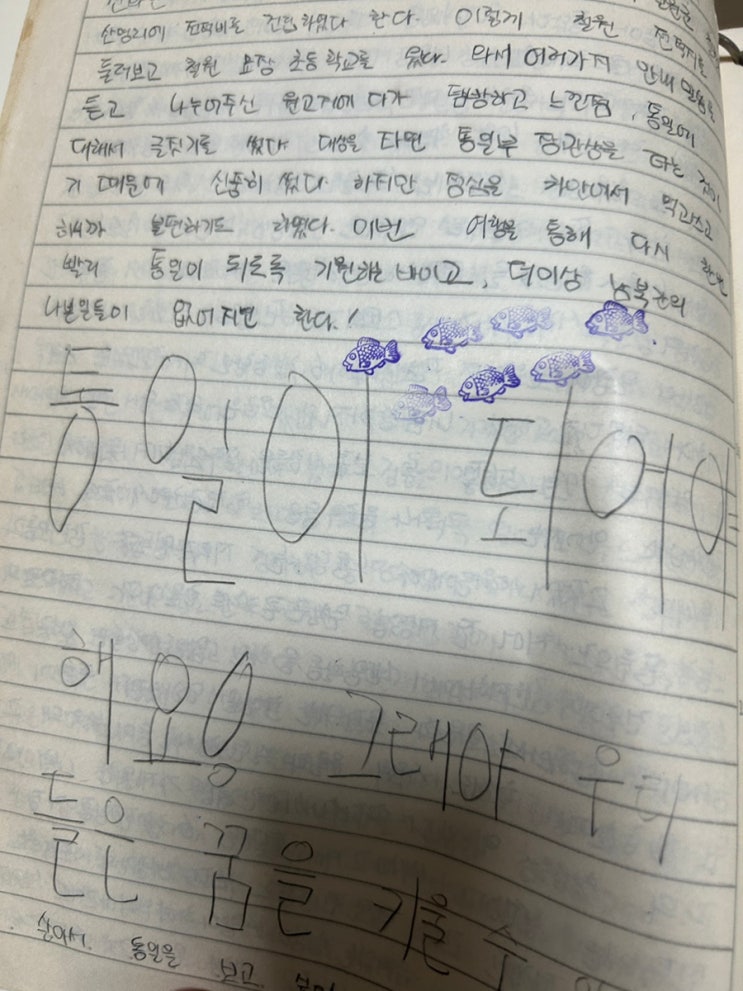 산명리에 전적비를 건립하였다 한다. 이렇게 철원 전적지를
둘러보고 철원 묘장 초등학교를 왔다. 와서 여러가지 안내 말씀을
듣고 나누어주신 원고지에 다가 탐방하고 느낀점, 통일에
대해서 글짓기를 썼다 대상을 타면 통일부 장관상을 타는 것이
기 때문에 신중히 썼다 하지만 점심을 차안에서 먹고쓰고
하니까 불편하기도 하였다. 이번 여행을 통해 다시 한번
빨리 통일이 되도록 기원하는 바이고, 더이상 남북간의
나쁜일들이 없어지면 한다.!
통일이 되어야
해요! 그래야 우리
들은 꿈을 키울 수
통일을 보고